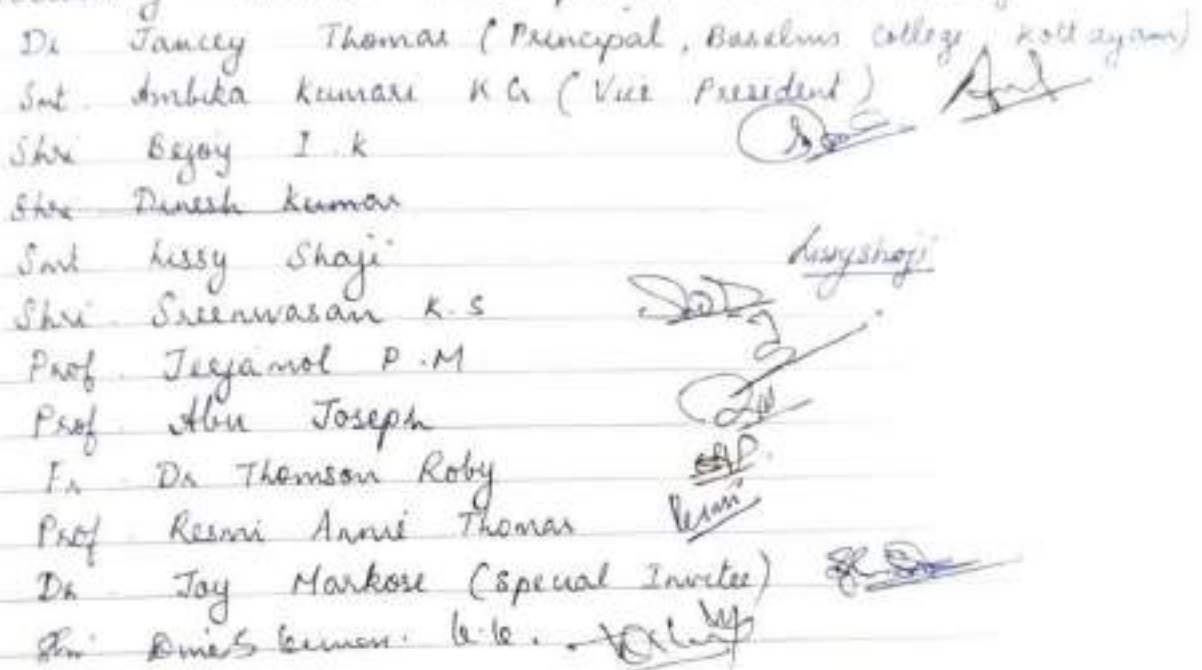 Dr Jancey Thomas (Principal, Baselius College, Kottayam)
Smt. Ambika Kumari K G (Vice President)
Shri Bejoy I. K
Shri Dinesh Kumar
Smt Lissy Shaji Lissyshaji
Shri. Sreenivasan K. S
Prof. Jeejamol P. M
Prof. Abu Joseph
Fr. Dr Thomson Roby
Prof. Resmi Annie Thomas Resmi
Dr Joy Markose (Special Invitee)
Shri Dinesh Kumar. K. K.